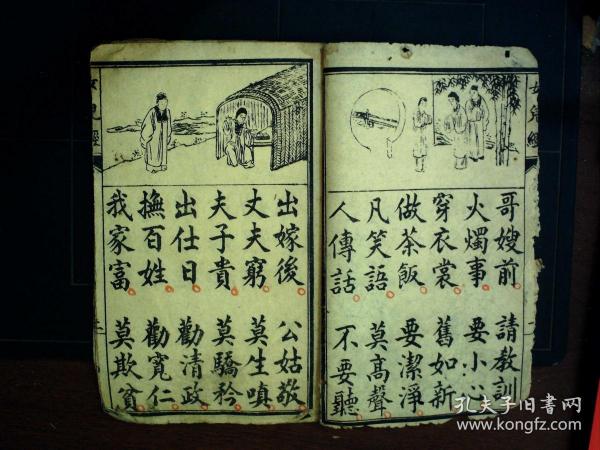 女兒經
哥嫂前 請教訓
火燭事 要小心
穿衣裳 舊如新
做茶飯 要潔淨
凡笑語 莫高聲
人傳話 不要聽
出嫁後 公姑敬
丈夫窮 莫生嗔
夫子貴 莫驕矜
出仕日 勸清政
撫百姓 勸寬仁
我家富 莫欺貧
女兒經
孔夫子旧书网
www.kongfz.com